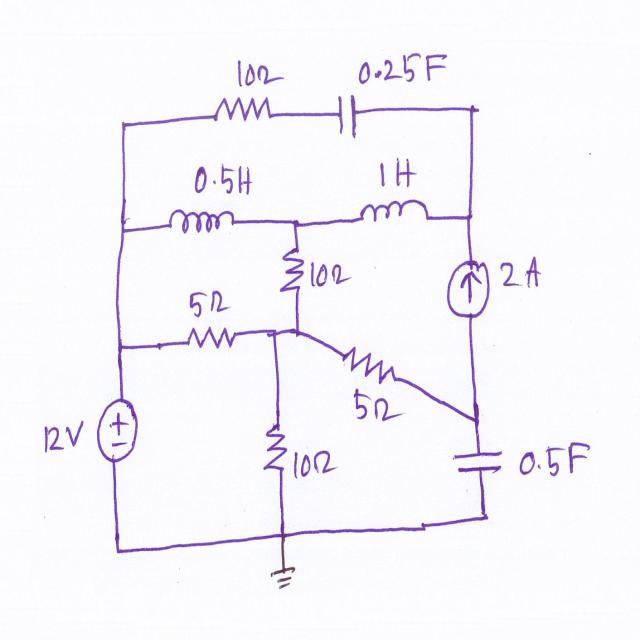 10Ω
0.25F
0.5H
1H
10Ω
2A
5Ω
5Ω
12V
+
−
10Ω
0.5F